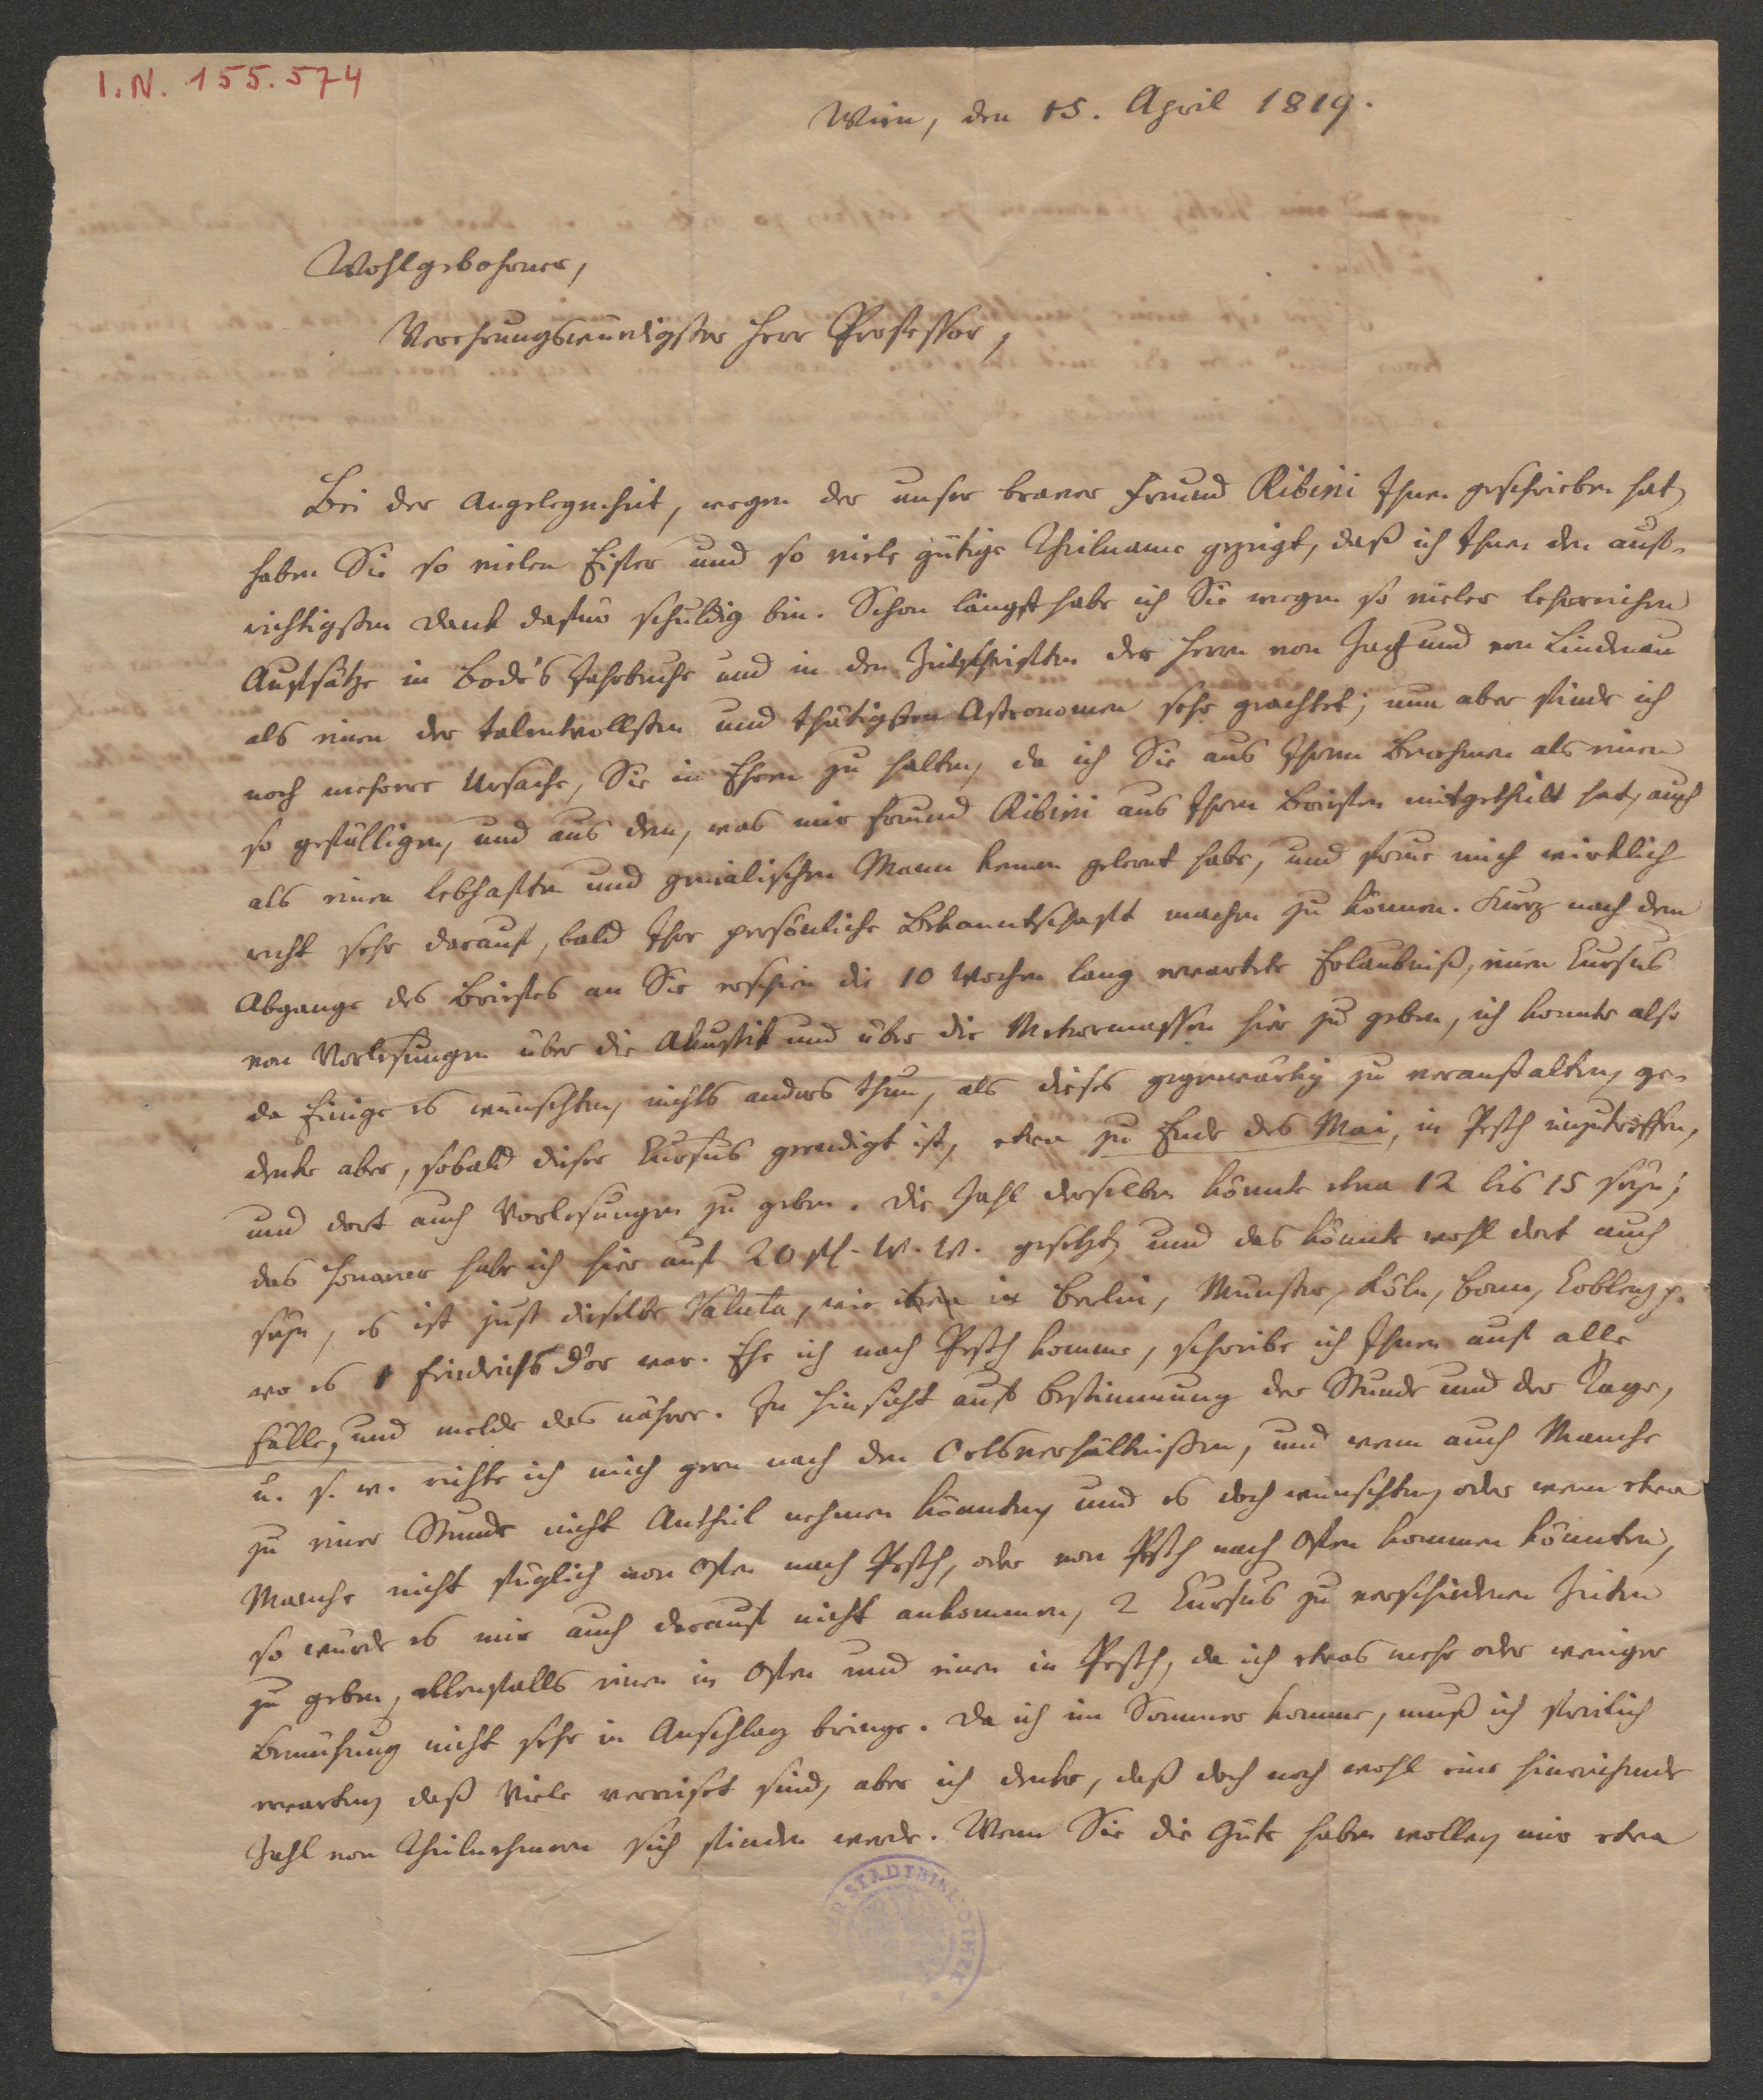 I.N. 155.574
Wien, den 15. April 1819.
Wohlgebohrner,
Verehrungswürdigster Herr Professor,
Bei der Angelegenheit, wegen der unser braver Freund Ribini Ihnen geschrieben hat,
haben Sie so vielen Eifer und so viele gütige Theilname gezeigt, daß ich Ihnen den auf-
richtigsten Dank dafür schuldig bin. Schon längst habe ich Sie wegen so vieler lehrreichen
Aufsätze in Bode's Jahrbuche und in den Zeitschriften der Herrn von Zach und von Lindenau
als einen der talentvollsten und thätigsten Astronomen sehr geachtet; nun aber finde ich
noch mehrere Ursache, Sie in Ehren zu halten, da ich Sie aus Ihrem Benehmen als einen
so gefälligen, und aus dem, was mir Freund Ribini aus Ihren Briefen mitgetheilt hat, auch
als einen lebhaften und genialischen Mann kennen gelernt habe, und freue mich wirklich
recht sehr darauf, bald Ihre persönliche Bekanntschaft machen zu können. Kurz nach dem
Abgange des Briefes an Sie erschien die 10 Wochen lang erwartete Erlaubniß, einen Cursus
von Vorlesungen über die Akustik und über die Meteormassen hier zu geben, ich konnte also
da Einige es wünschten, nichts anders thun, als dieses gegenwärtig zu veranstalten, ge-
denke aber, sobald dieser Cursus geendigt ist, etwa zu Ende des Mai, in Pesth einzutreffen,
und dort auch Vorlesungen zu geben. Die Zahl derselben könnte etwa 12 bis 15 seyn;
das Honorar habe ich hier auf 20 fl. W. W. gesetzt, und das könnte wohl dort auch
seyn, es ist just dieselbe Valuta, wie in Berlin, Münster, Köln, Bonn, Coblenz p.
wo es 1 Friedrichsd'or war. Ehe ich nach Pesth komme, schreibe ich Ihnen auf alle
Fälle, und melde das nähere. In Hinsicht auf Bestimmung der Stunde und der Tage,
u. s. w. richte ich mich gern nach den Ortsverhältnißen, und wenn auch Manche
zu einer Stunde nicht Antheil nehmen könnten, und es doch wünschten, oder wenn etwa
Manche nicht füglich von Ofen nach Pesth, oder von Pesth nach Ofen kommen könnten,
so würde es mir auch darauf nicht ankommen, 2 Cursus zu verschiedenen Zeiten
zu geben, allenfalls einen in Ofen und einen in Pesth, da ich etwas mehr oder weniger
Bemühung nicht sehr in Anschlag bringe. Da ich im Sommer komme, muß ich freilich
erwarten, daß Viele verreiset sind, aber ich denke, daß doch noch wohl eine hinreichende
Zahl von Theilnehmern sich finden werde. Wenn Sie die Güte haben wollen, mir etwa
STADTBIBLIOTHEK